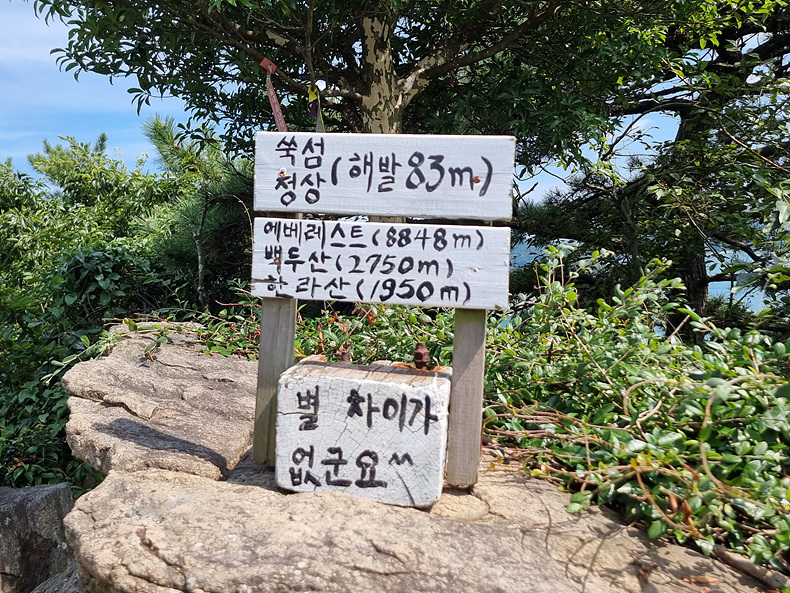 쑥섬
정상 (해발 83m)
에베레스트(8848m)
백두산(2750m)
한라산(1950m)
별 차이가
없군요^^